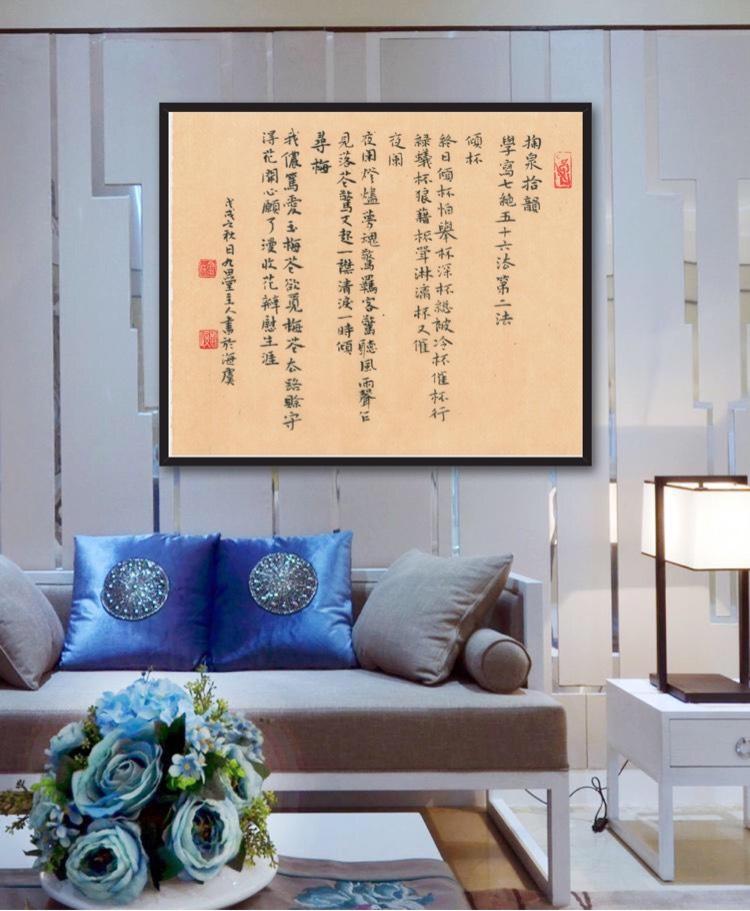 掬泉拾韻
學寫七絕五十六法第二法
傾杯
終日傾杯怕舉杯深杯總被冷杯催杯行
綠蟻杯狼藉杯聳淋漓杯又催
夜闌
夜闌燈燼夢魂驚羈客驚聽風雨聲
見落花驚又起一襟清淚一時傾
尋梅
我儂篤愛玉梅花欲覓梅花路賒守
得花開心願了漫收花瓣慰生涯
戊戌之秋日九思堂主人書於海虞